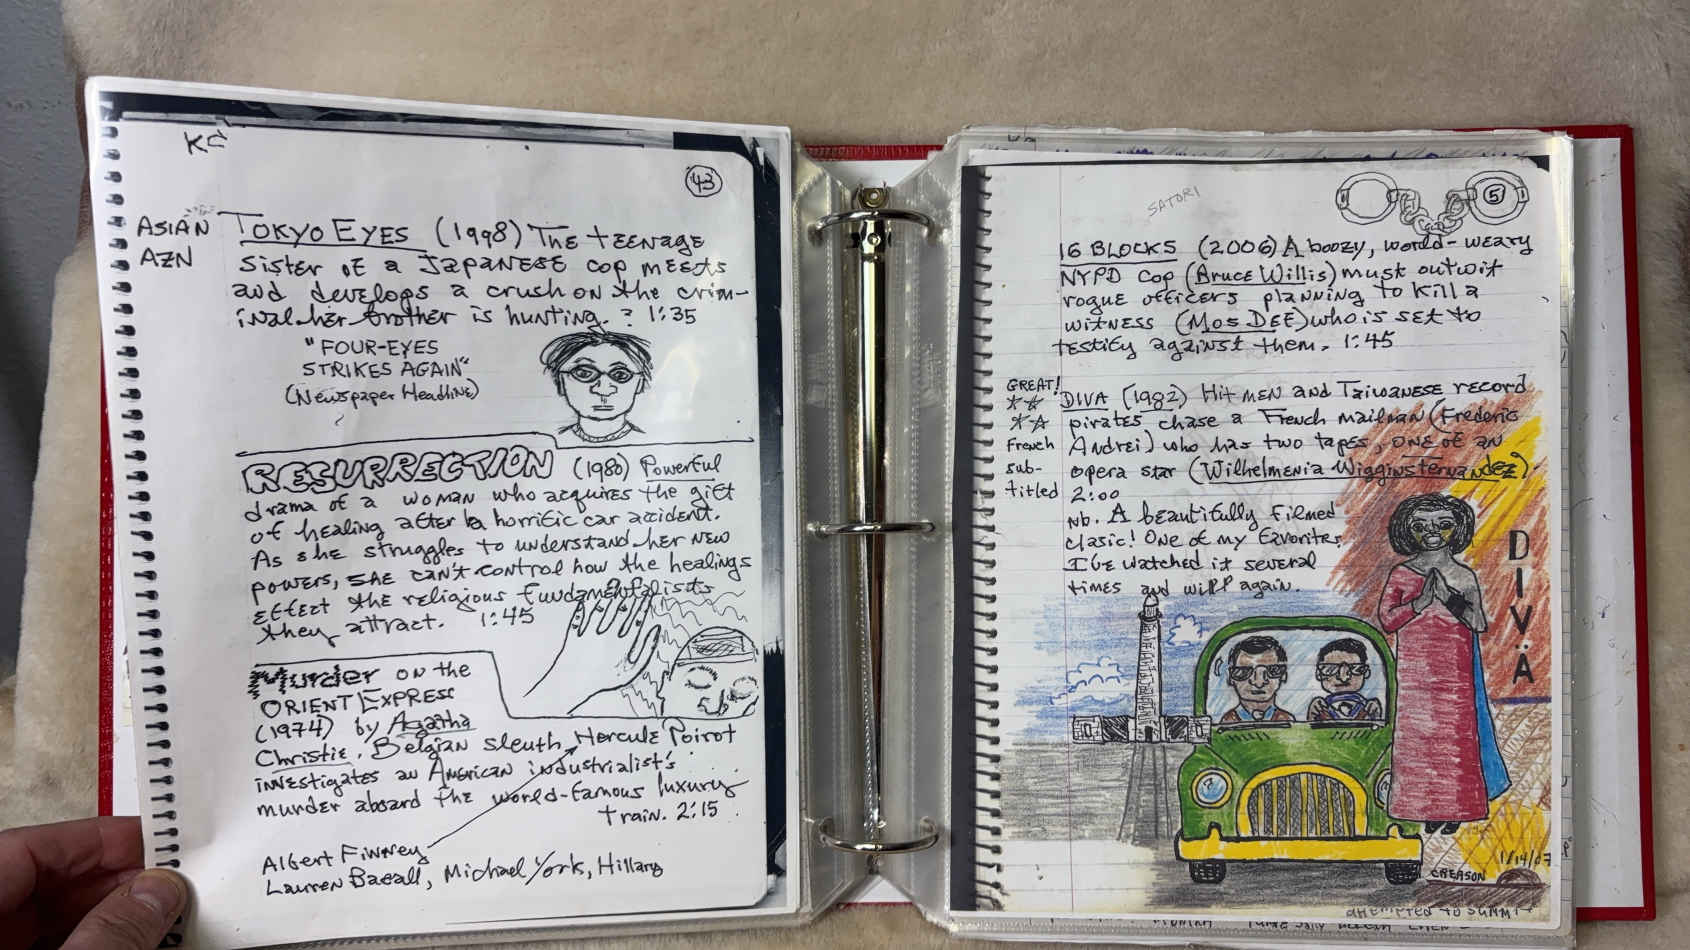 43
ASIAN
AZN
TOKYO EYES (1998) THE teenage
sister of a JAPANESE cop meets
and develops a crush on the crim-
inal her brother is hunting. ? 1:35
"FOUR-EYES
STRIKES AGAIN"
(Newspaper Headline)
RESURRECTION (1980) Powerful
drama of a woman who acquires the gift
of healing after a horrific car accident.
As she struggles to understand her new
powers, she can't control how the healings
effect the religious fundamentalists
they attract. 1:45
Murder on the
ORIENT EXPRESS
(1974) by Agatha
Christie. Belgian sleuth, Hercule Poirot
investigates an American industrialist's
murder aboard the world-famous luxury
train. 2:15
Albert Finney
Lauren Bacall, Michael York, Hillary
SATORI
5
16 BLOCKS (2006) A boozy, world-weary
NYPD Cop (Bruce Willis) must outwit
rogue officers planning to kill a
witness (Mos DEF) who is set to
testify against them. 1:45
GREAT!
French
sub-
titled
DIVA (1982) Hit men and Taiwanese record
pirates chase a French mailman (Frederic
Andrei) who has two tapes, one of an
opera star (Wilhelmenia Wiggins Fernandez)
2:00
Nb. A beautifully filmed
clasic! One of my favorites
I've watched it several
times and will again.
DIVÄ
1/14/07
CREASON
attempted to summit